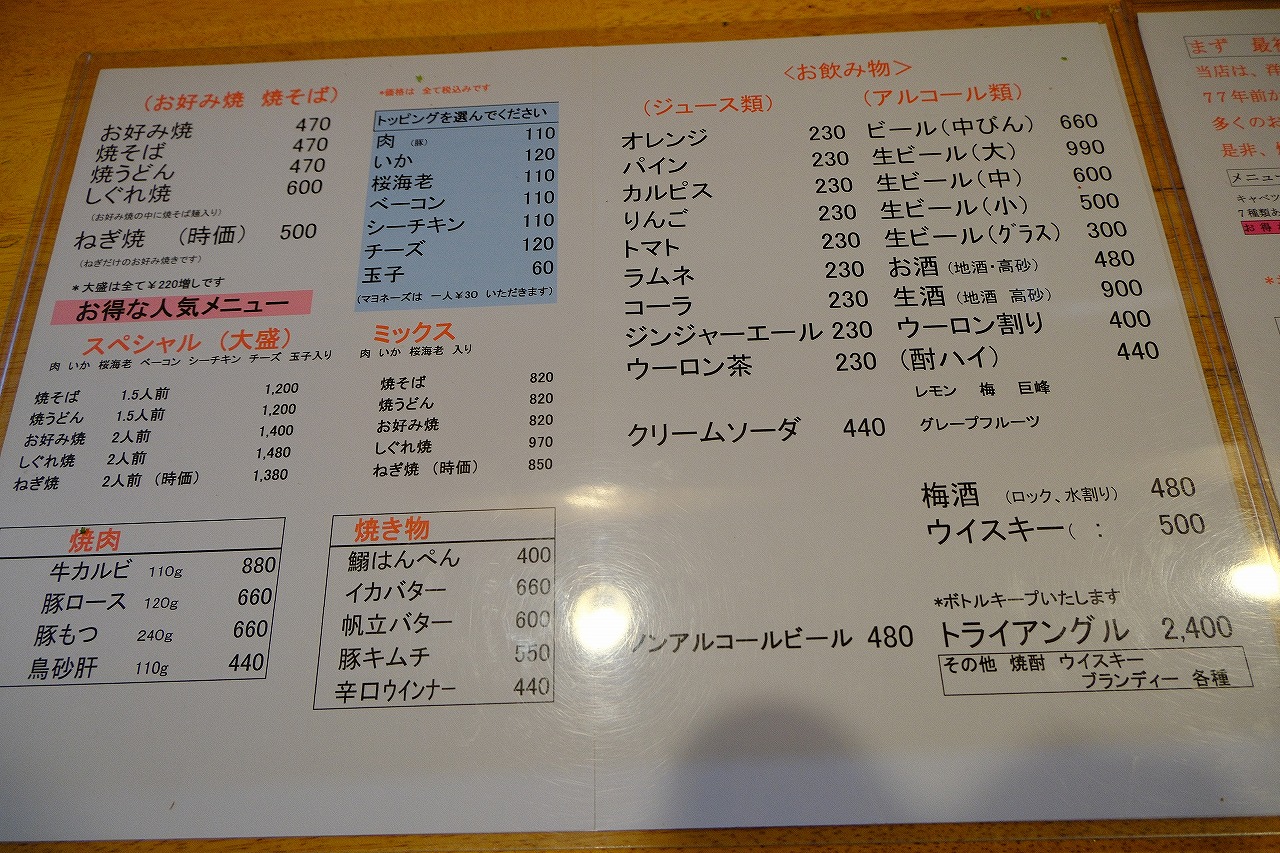 (お好み焼 焼そば)
お好み焼 470
焼そば 470
焼うどん 470
しぐれ焼 600
(お好み焼の中に焼そば麺入り)
ねぎ焼 (時価) 500
(ねぎだけのお好み焼きです)
*大盛は全て￥220増しです
お得な人気メニュー
スペシャル (大盛)
肉 いか 桜海老 ベーコン シーチキン チーズ 玉子入り
焼そば 1.5人前 1,200
焼うどん 1.5人前 1,200
お好み焼 2人前 1,400
しぐれ焼 2人前 1,480
ねぎ焼 2人前 (時価) 1,380
焼肉
牛カルビ 110g 880
豚ロース 120g 660
豚もつ 240g 660
鳥砂肝 110g 440
*価格は 全て税込みです
トッピングを選んでください
肉 (豚) 110
いか 120
桜海老 110
ベーコン 110
シーチキン 110
チーズ 120
玉子 60
(マヨネーズは 一人￥30 いただきます)
ミックス
肉 いか 桜海老 入り
焼そば 820
焼うどん 820
お好み焼 820
しぐれ焼 970
ねぎ焼 (時価) 850
焼き物
鰯はんぺん 400
イカバター 660
帆立バター 600
豚キムチ 550
辛口ウインナー 440
<お飲み物>
(ジュース類)
オレンジ 230
パイン 230
カルピス 230
りんご 230
トマト 230
ラムネ 230
コーラ 230
ジンジャーエール 230
ウーロン茶 230
クリームソーダ 440
ノンアルコールビール 480
(アルコール類)
ビール(中びん) 660
生ビール(大) 990
生ビール(中) 600
生ビール(小) 500
生ビール(グラス) 300
お酒 (地酒・高砂) 480
生酒 (地酒 高砂) 900
ウーロン割り 400
(酎ハイ) 440
レモン 梅 巨峰
グレープフルーツ
梅酒 (ロック、水割り) 480
ウイスキー( : 500
*ボトルキープいたします
トライアングル 2,400
その他 焼酎 ウイスキー
ブランディー 各種
まず
当店は、
77年前か
多くのお
是非、
メニュー
キャベツ
7種類
お得